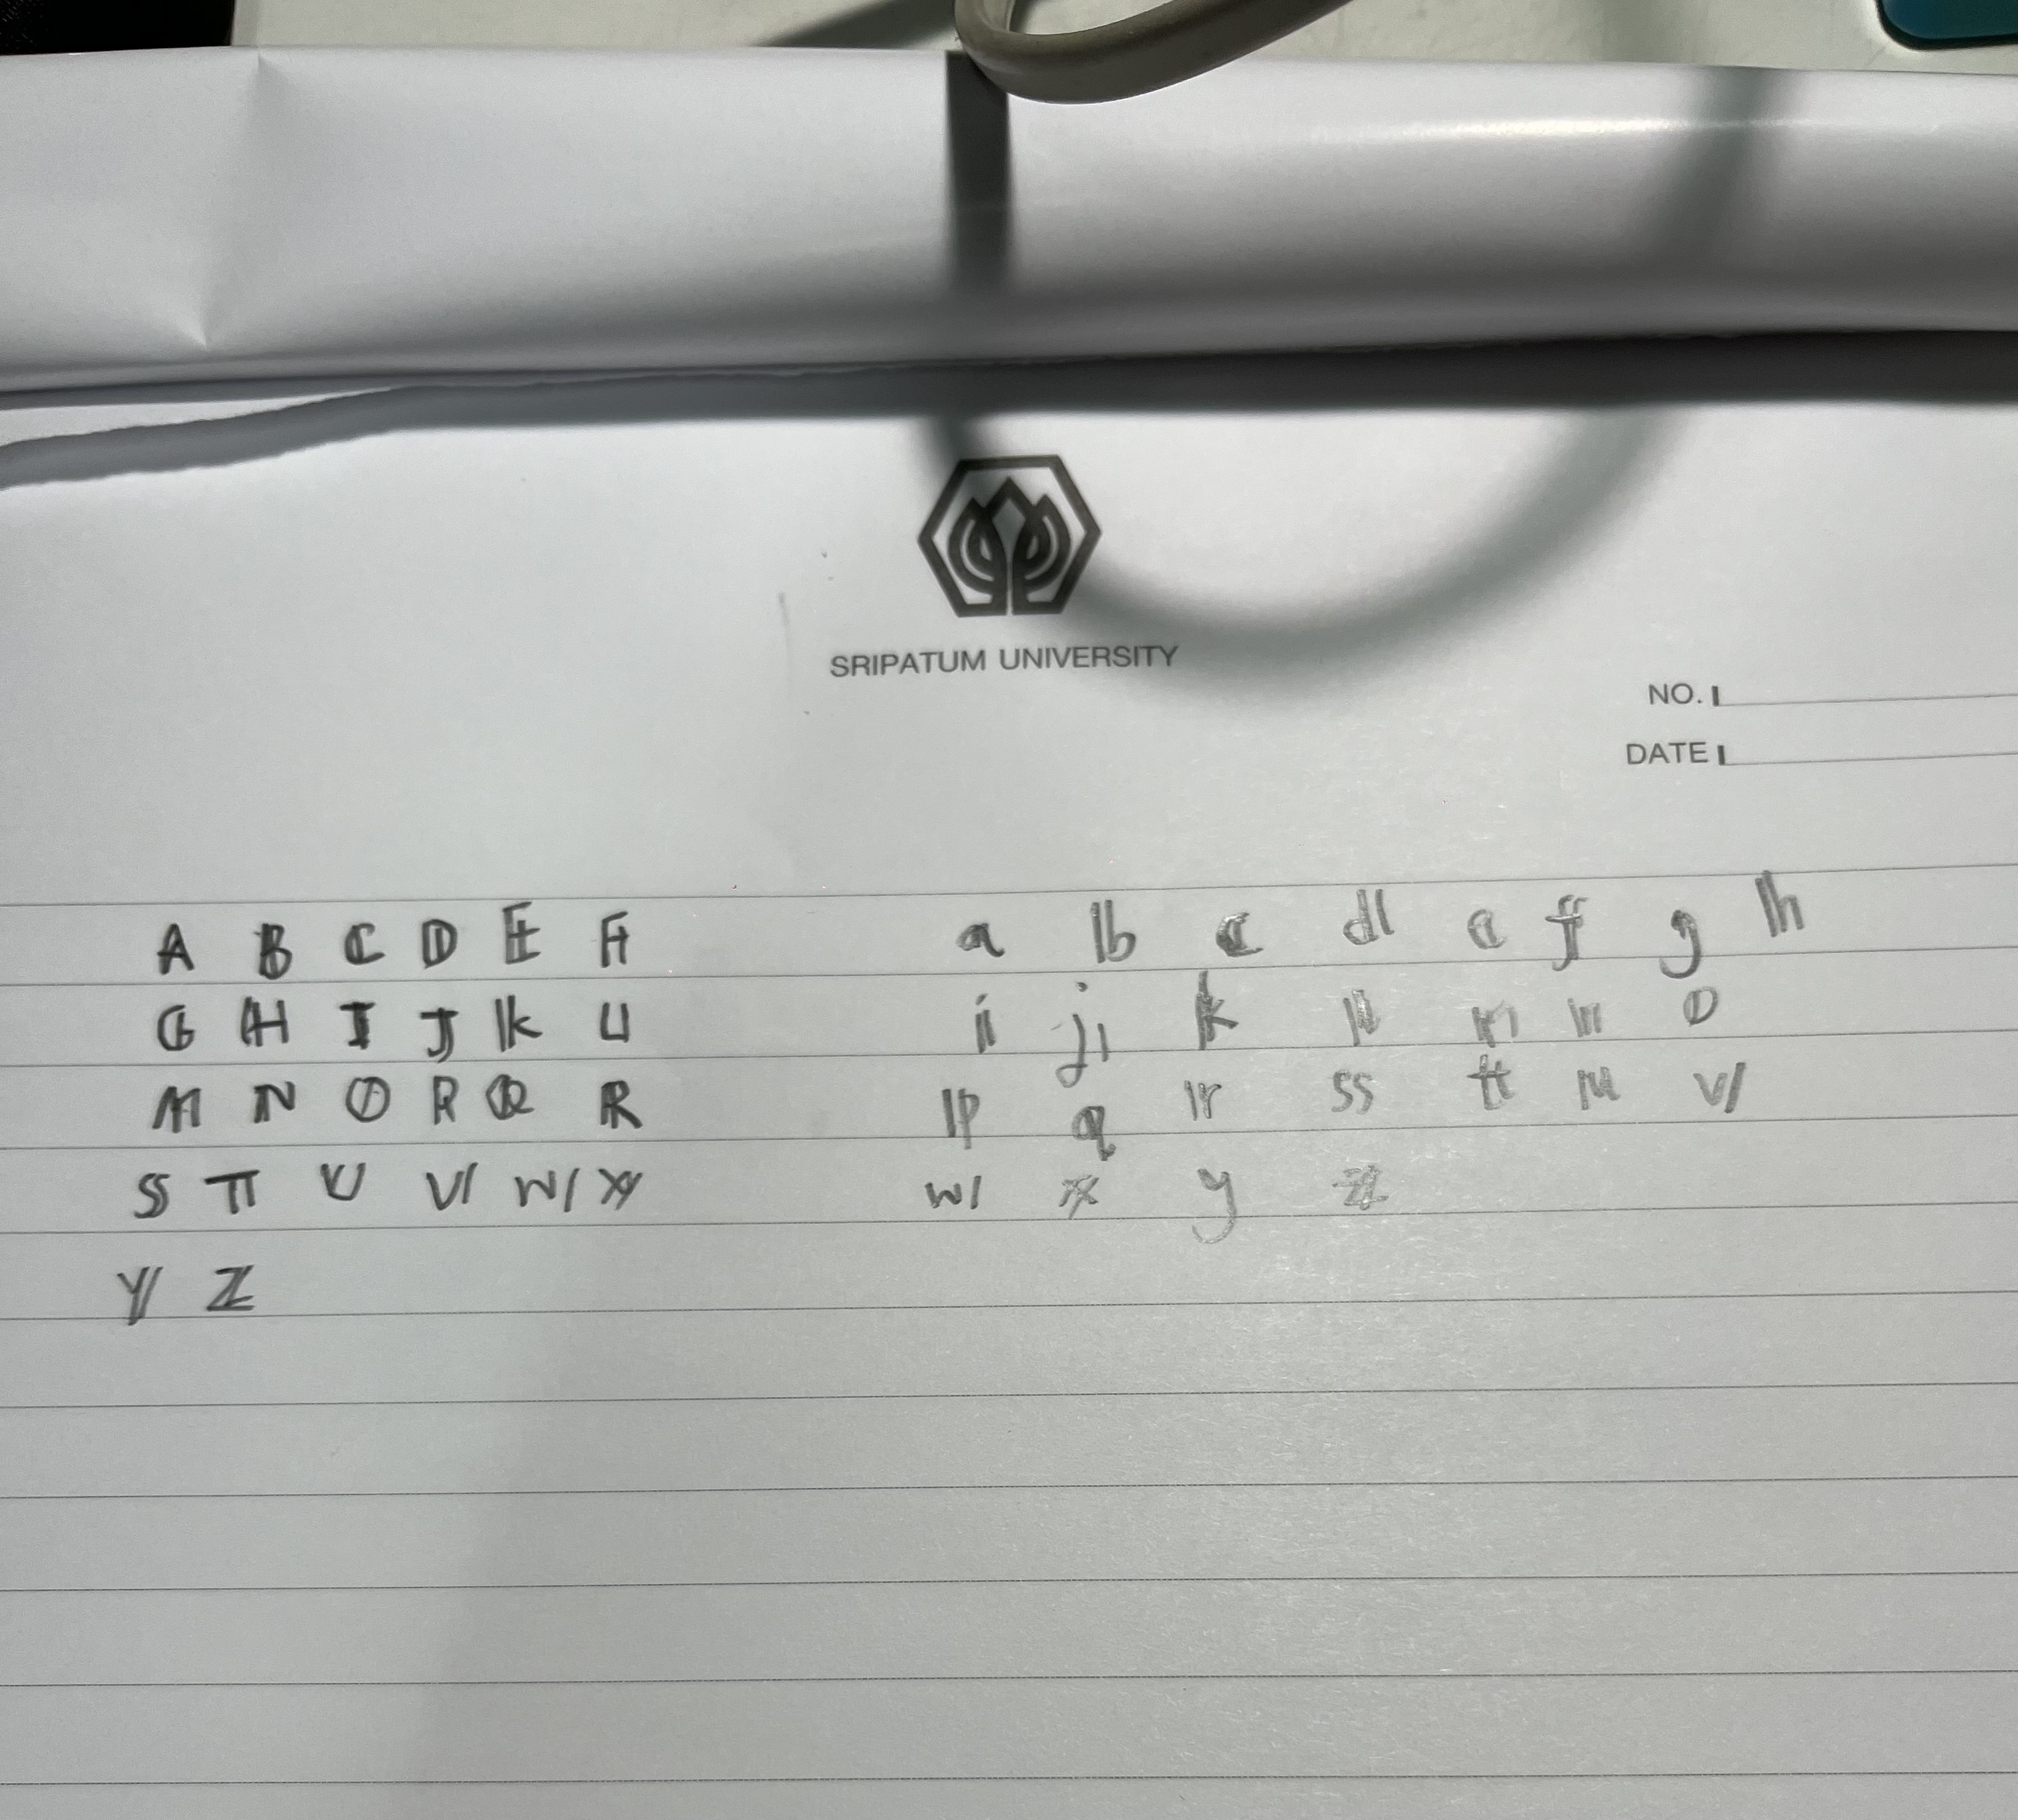 SRIPATUM UNIVERSITY
NO.
DATE
A B C D E F
G H I J K L
M N O P Q R
S T U V W X
Y Z
a b c d e f g h
i j k l m n o
p q r s t u v
w x y z